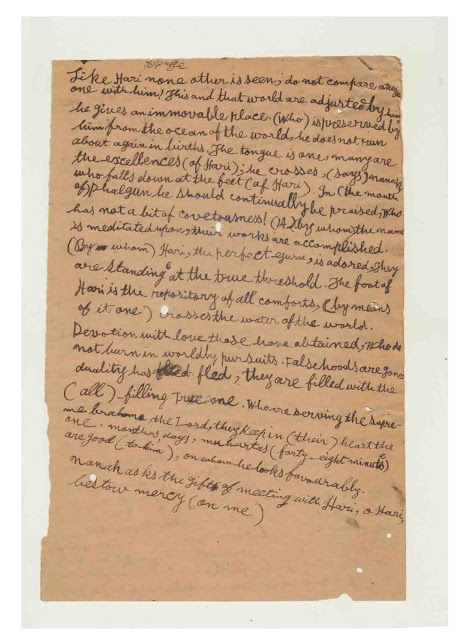 Like Hari none other is seen; do not compare any
one with him! This and that world are adjusted by him
he gives an immovable place (Who) is preserved by
him from the ocean of the world, he does not run
about again in births. The tongue is one, many are
the excellences (of Hari); he crosses, (says) nanak,
who falls down at the feet (of Hari). In (the month
of) Phalgun he should continually be praised, Who
has not a bit of covetousness! (14) By whom the name
is meditated upon, their works are accomplished.
(By whom) Hari, the perfect guru, is adored, They
are standing at the true threshold. The foot of
Hari is the repository of all comforts, (by means
of it one) crosses the water of the world.
Devotion with love those have obtained, Who do
not burn in worldly pursuits. Falsehoods are gone
duality has fled, they are filled with the
(all)-filling True one. Who are serving the supre-
me brahma, the Lord, they keep in (their) heart the
one. months, days, muhurtas (forty-eight minutes)
are good (to him), on whom he looks favourably.
nanak asks the gift of meeting with Hari, o Hari,
bestow mercy (on me)